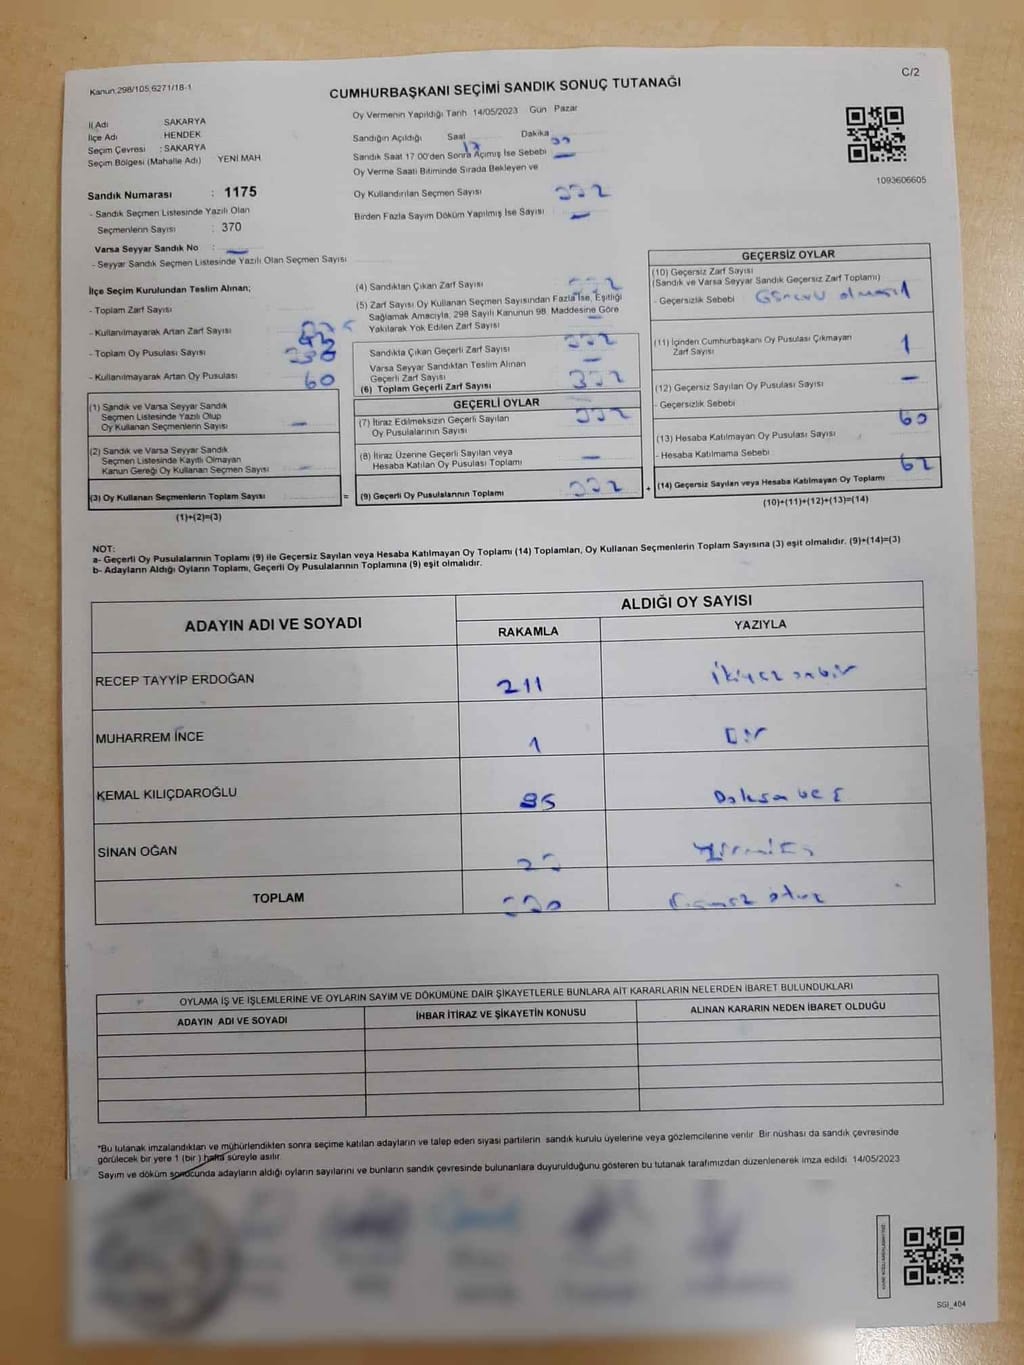 Kanun.298/105.6271/18-1
C/2
CUMHURBAŞKANI SEÇİMİ SANDIK SONUÇ TUTANAĞI
İl Adı SAKARYA
İlçe Adı HENDEK
Seçim Çevresi : SAKARYA
Seçim Bölgesi (Mahalle Adı) YENİ MAH
Sandık Numarası : 1175
- Sandık Seçmen Listesinde Yazılı Olan
Seçmenlerin Sayısı : 370
Varsa Seyyar Sandık No : —
- Seyyar Sandık Seçmen Listesinde Yazılı Olan Seçmen Sayısı
Oy Vermenin Yapıldığı Tarih 14/05/2023 Gün Pazar
Sandığın Açıldığı Saat 17 Dakika
Sandık Saat 17.00'den Sonra Açımış İse Sebebi —
Oy Verme Saati Bitiminde Sırada Bekleyen ve
Oy Kullandırılan Seçmen Sayısı 332
Birden Fazla Sayım Döküm Yapılmış İse Sayısı —
1093606605
İlçe Seçim Kurulundan Teslim Alınan;
- Toplam Zarf Sayısı
- Kullanılmayarak Artan Zarf Sayısı
- Toplam Oy Pusulası Sayısı
- Kullanılmayarak Artan Oy Pusulası 60
(1) Sandık ve Varsa Seyyar Sandık
Seçmen Listesinde Yazılı Olup
Oy Kullanan Seçmenlerin Sayısı —
(2) Sandık ve Varsa Seyyar Sandık
Seçmen Listesinde Kayıtlı Olmayan
Kanun Gereği Oy Kullanan Seçmen Sayısı —
(3) Oy Kullanan Seçmenlerin Toplam Sayısı =
(1)+(2)=(3)
(4) Sandıktan Çıkan Zarf Sayısı 332
(5) Zarf Sayısı Oy Kullanan Seçmen Sayısından Fazla İse, Eşitliği
Sağlamak Amacıyla, 298 Sayılı Kanunun 98. Maddesine Göre
Yakılarak Yok Edilen Zarf Sayısı —
Sandıkta Çıkan Geçerli Zarf Sayısı 332
Varsa Seyyar Sandıktan Teslim Alınan
Geçerli Zarf Sayısı —
(6) Toplam Geçerli Zarf Sayısı 332
GEÇERLİ OYLAR
(7) İtiraz Edilmeksizin Geçerli Sayılan
Oy Pusulalarının Sayısı 332
(8) İtiraz Üzerine Geçerli Sayılan veya
Hesaba Katılan Oy Pusulası Toplamı —
(9) Geçerli Oy Pusulalarının Toplamı 332 +
GEÇERSİZ OYLAR
(10) Geçersiz Zarf Sayısı
(Sandık ve Varsa Seyyar Sandık Geçersiz Zarf Toplamı)
- Geçersizlik Sebebi
(11) İçinden Cumhurbaşkanı Oy Pusulası Çıkmayan
Zarf Sayısı 1
(12) Geçersiz Sayılan Oy Pusulası Sayısı —
- Geçersizlik Sebebi
(13) Hesaba Katılmayan Oy Pusulası Sayısı 60
- Hesaba Katılmama Sebebi
(14) Geçersiz Sayılan veya Hesaba Katılmayan Oy Toplamı 62
(10)+(11)+(12)+(13)=(14)
NOT:
a- Geçerli Oy Pusulalarının Toplamı (9) ile Geçersiz Sayılan veya Hesaba Katılmayan Oy Toplamı (14) Toplamları, Oy Kullanan Seçmenlerin Toplam Sayısına (3) eşit olmalıdır. (9)+(14)=(3)
b- Adayların Aldığı Oyların Toplamı, Geçerli Oy Pusulalarının Toplamına (9) eşit olmalıdır.
ADAYIN ADI VE SOYADI ALDIĞI OY SAYISI
RAKAMLA YAZIYLA
RECEP TAYYİP ERDOĞAN 211
MUHARREM İNCE 1 Bir
KEMAL KILIÇDAROĞLU 95 Doksan beş
SİNAN OĞAN
TOPLAM
OYLAMA İŞ VE İŞLEMLERİNE VE OYLARIN SAYIM VE DÖKÜMÜNE DAİR ŞİKAYETLERLE BUNLARA AİT KARARLARIN NELERDEN İBARET BULUNDUKLARI
ADAYIN ADI VE SOYADI İHBAR İTİRAZ VE ŞİKAYETİN KONUSU ALINAN KARARIN NEDEN İBARET OLDUĞU
*Bu tutanak imzalandıktan ve mühürlendikten sonra seçime katılan adayların ve talep eden siyasi partilerin sandık kurulu üyelerine veya gözlemcilerine verilir. Bir nüshası da sandık çevresinde
görülecek bir yere 1 (bir) hafta süreyle asılır.
Sayım ve döküm sonucunda adayların aldığı oyların sayılarını ve bunların sandık çevresinde bulunanlara duyurulduğunu gösteren bu tutanak tarafımızdan düzenlenerek imza edildi. 14/05/2023
SGI_404